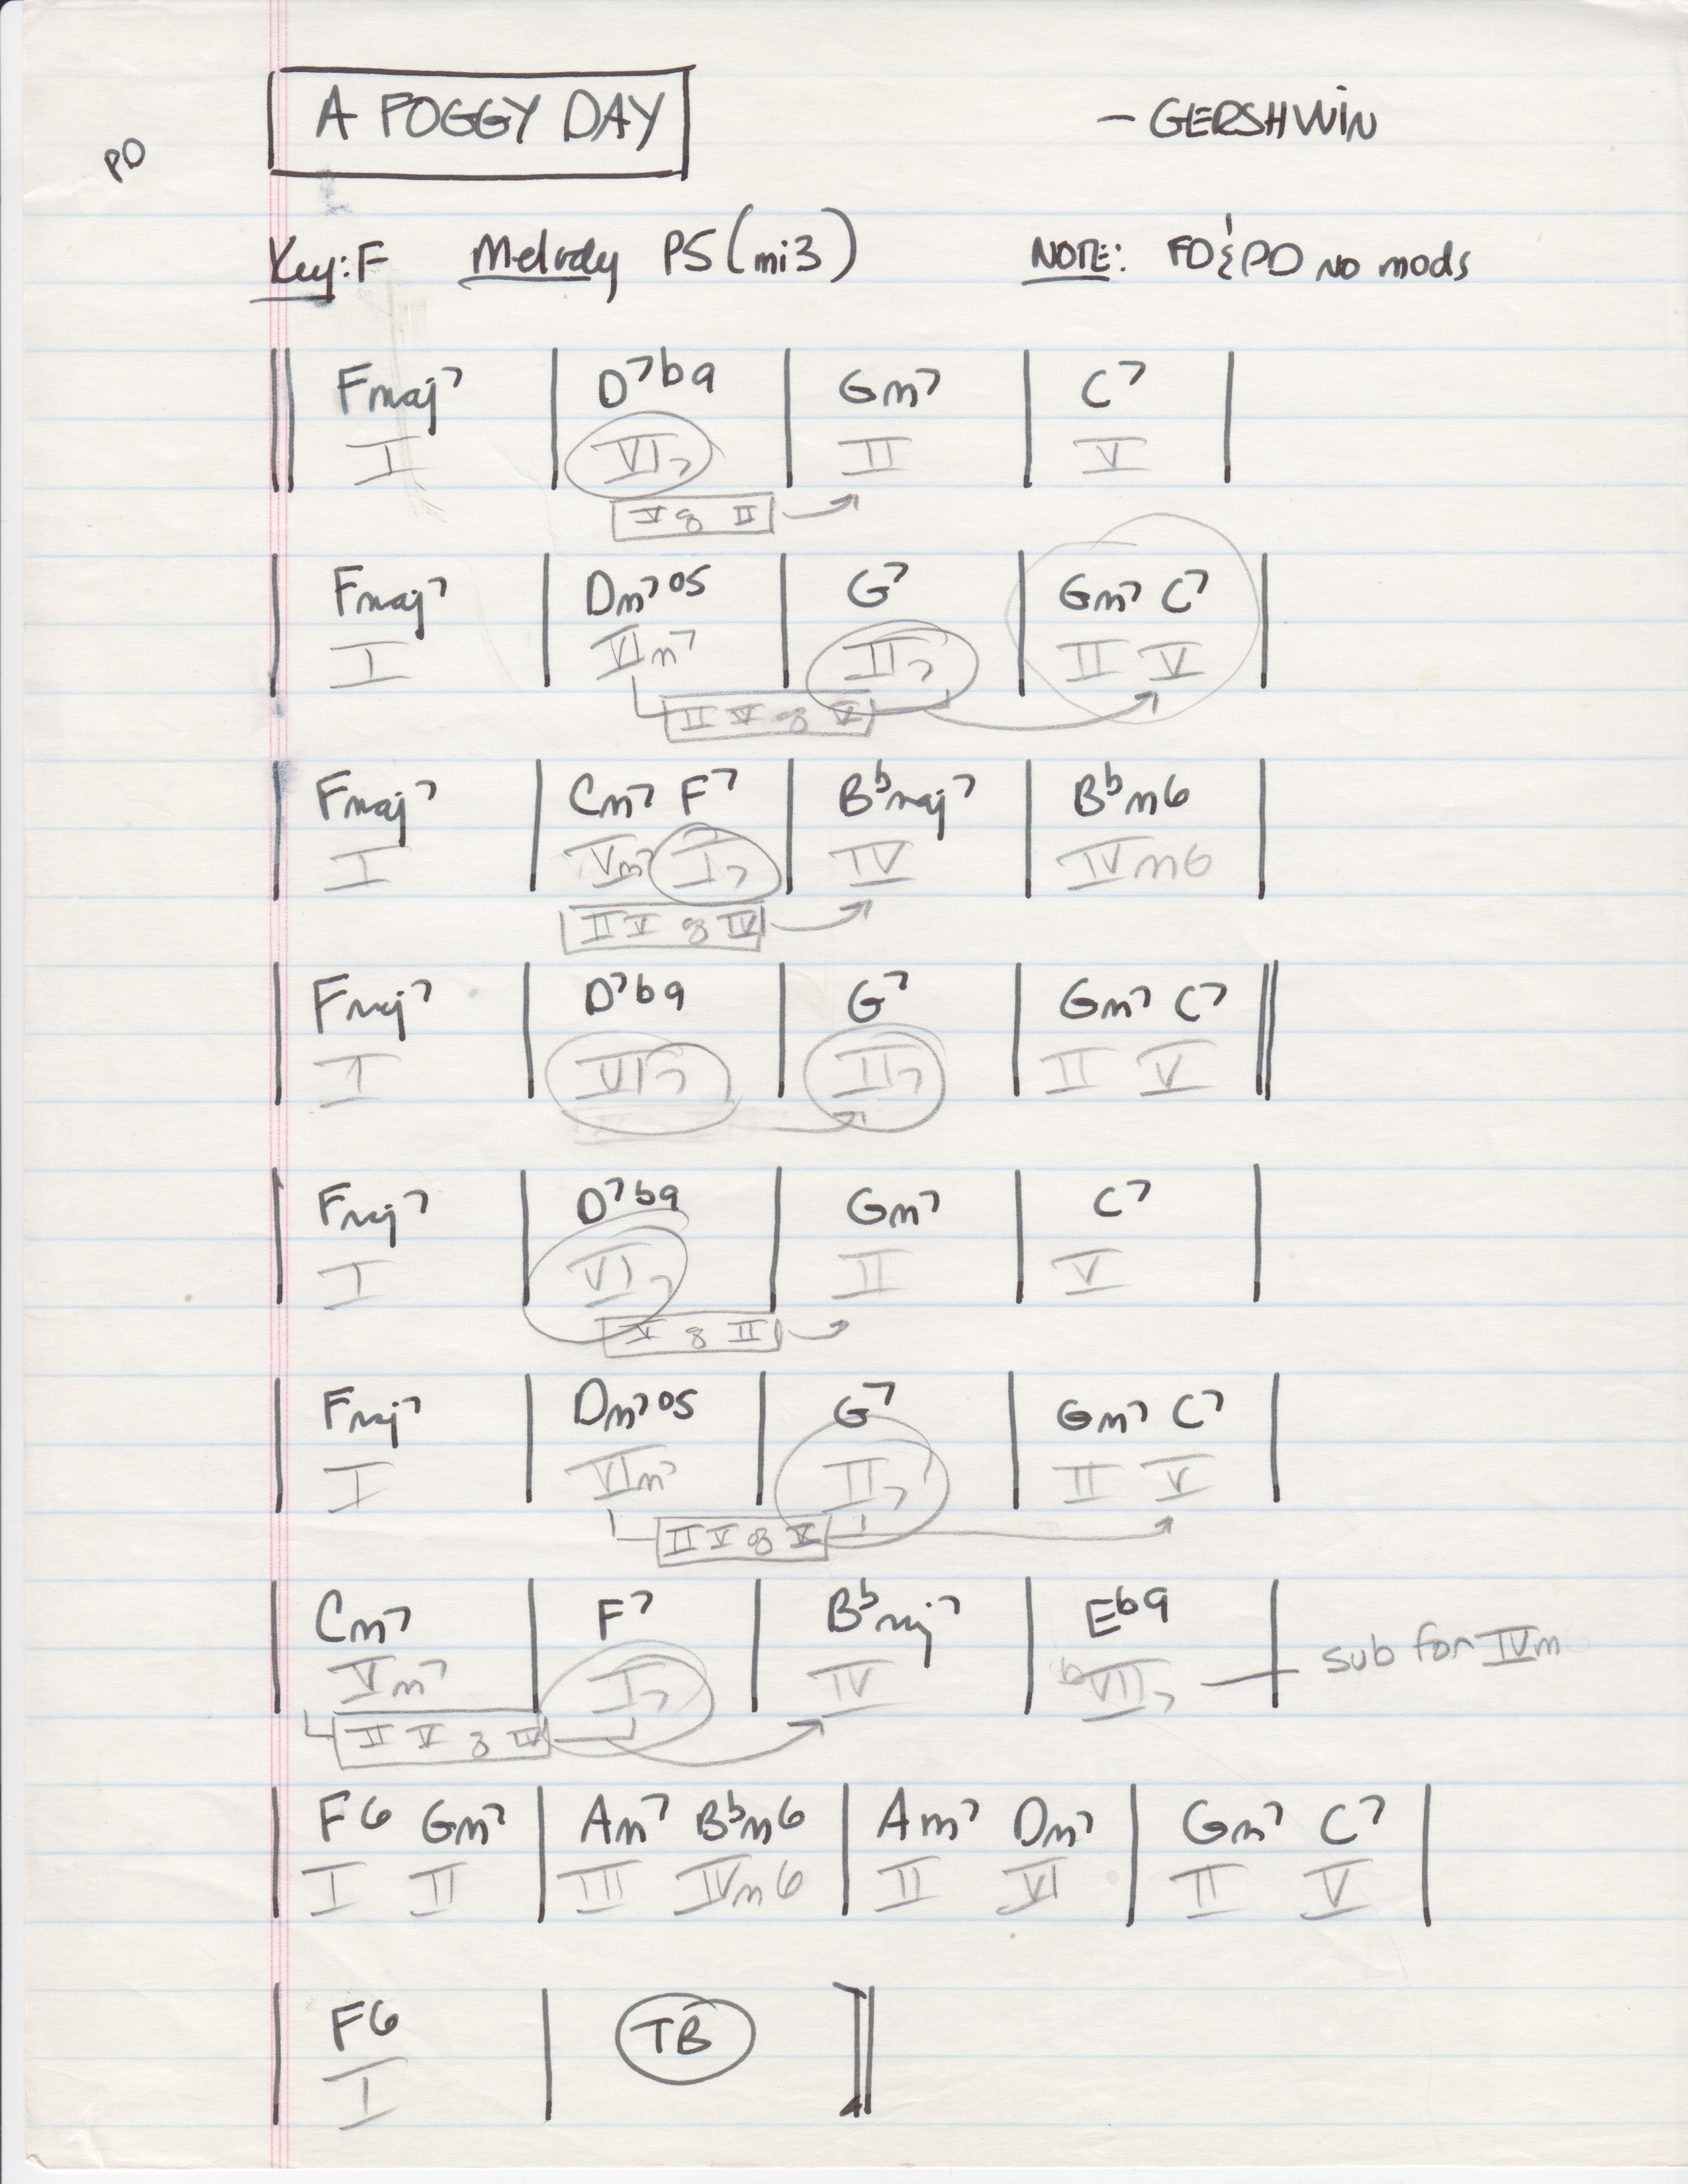 A FOGGY DAY – GERSHWIN
PD
Key: F Melody P5 (mi3) NOTE: FD & PD NO mods
Fmaj7 | D7b9 | Gm7 | C7
I | VI7 | II | V
V of II
Fmaj7 | Dm7o5 | G7 | Gm7 C7
I | VIm7 | II7 | II V
II V of V
Fmaj7 | Cm7 F7 | Bbmaj7 | Bbm6
I | Vm7 I7 | IV | IVm6
II V of IV
Fmaj7 | D7b9 | G7 | Gm7 C7
I | VI7 | II7 | II V
Fmaj7 | D7b9 | Gm7 | C7
I | VI7 | II | V
V of II
Fmaj7 | Dm7o5 | G7 | Gm7 C7
I | VIm7 | II7 | II V
II V of V
Cm7 | F7 | Bbmaj7 | Eb9
Vm7 | I7 | IV | bVII7 — sub for IVm
II V of IV
F6 Gm7 | Am7 Bbm6 | Am7 Dm7 | Gm7 C7
I II | III IVm6 | II VI | II V
F6 | TB
I